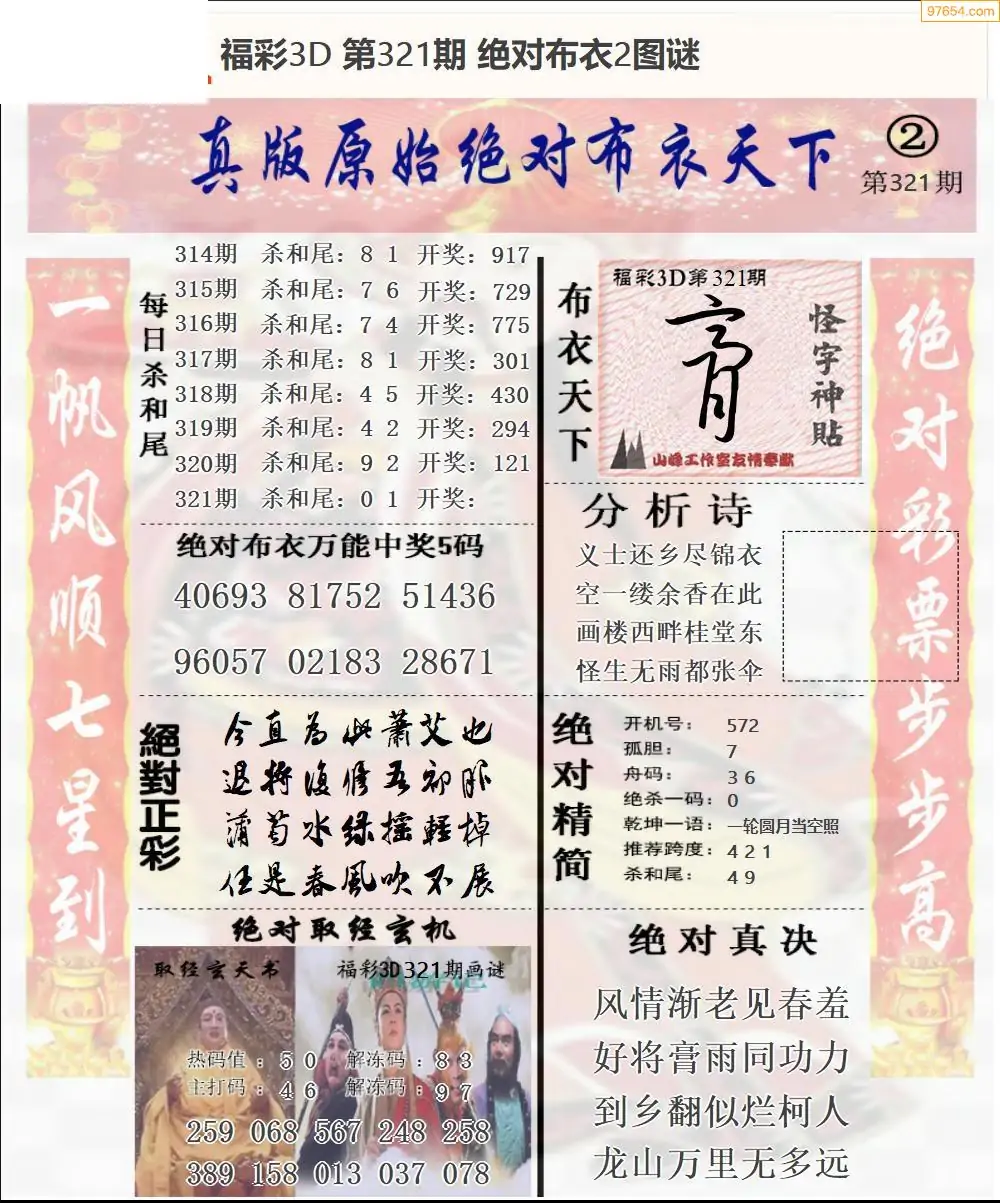 97654.com
福彩3D 第321期 绝对布衣2图谜
真版原始绝对布衣天下
②
第321期
一帆风顺七星到
每日杀和尾
314期 杀和尾：8 1 开奖：917
315期 杀和尾：7 6 开奖：729
316期 杀和尾：7 4 开奖：775
317期 杀和尾：8 1 开奖：301
318期 杀和尾：4 5 开奖：430
319期 杀和尾：4 2 开奖：294
320期 杀和尾：9 2 开奖：121
321期 杀和尾：0 1 开奖：
绝对布衣万能中奖5码
40693 81752 51436
96057 02183 28671
絕對正彩
今直為此蕭艾也
退将復修吾初服
蒲萄水绿摇輕棹
任是春風吹不展
绝对取经玄机
取经玄天书
福彩3D321期画谜
热码值：5 0 解冻码：8 3
主打码：4 6 解冻码：9 7
259 068 567 248 258
389 158 013 037 078
布衣天下
福彩3D第321期
怪字神貼
山峰工作室友情奉献
分析诗
义士还乡尽锦衣
空一缕余香在此
画楼西畔桂堂东
怪生无雨都张伞
绝对精简
开机号：572
孤胆：7
舟码：3 6
绝杀一码：0
乾坤一语：一轮圆月当空照
推荐跨度：4 2 1
杀和尾：4 9
绝对真决
风情渐老见春羞
好将膏雨同功力
到乡翻似烂柯人
龙山万里无多远
绝对彩票步步高